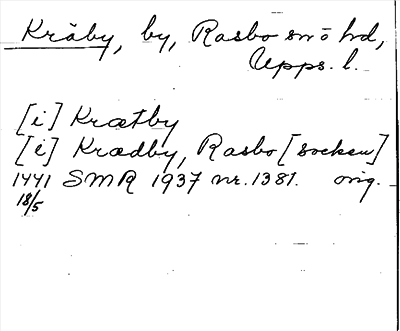 Kråby, by, Rasbo sn o hd,
Upps. l.
[i] Krætby
[i] Krædby, Rasbo [socken]
1441 SMR 1937 nr. 1381. orig.
18/5